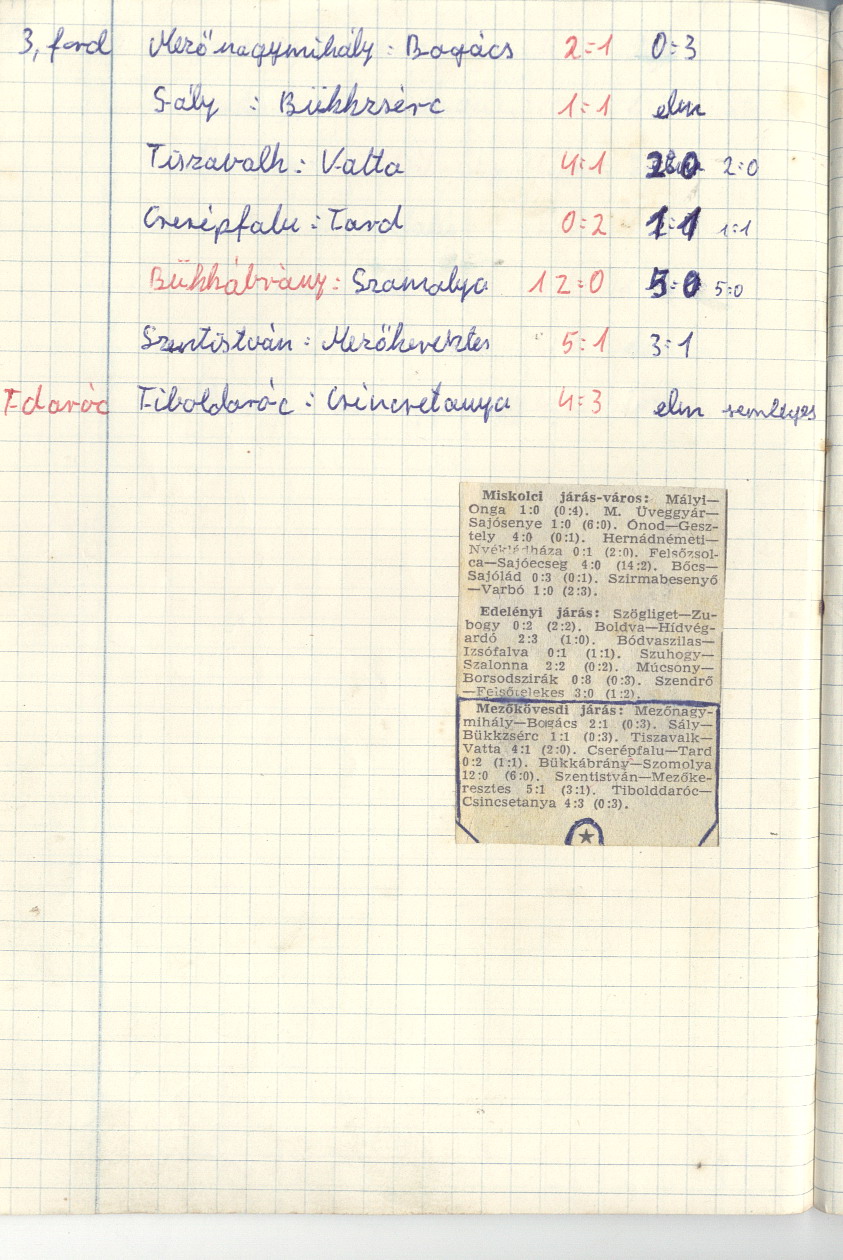 3, ford Mezőnagymihály : Bogács 2=1 0=3
Sály : Bükkzsérc 1=1 elm
Tiszavalk : Vatta 4:1 2:0 2=0
Cserépfalu : Tard 0=2 1=1 1=1
Bükkábrány : Szomolya 12=0 5=0 5=0
Szentistván : Mezőkeresztes 5=1 3=1
T-daróc Tiboldaróc : Csincsetanya 4=3 elm semleges
Miskolci járás-város: Mályi—
Onga 1:0 (0:4). M. Üveggyár—
Sajósenye 1:0 (6:0). Ónod—Gesz-
tely 4:0 (0:1). Hernádnémeti—
Nyékládháza 0:1 (2:0). Felsőzsol-
ca—Sajóecseg 4:0 (14:2). Bőcs—
Sajólád 0:3 (0:1). Szirmabesenyő
—Varbó 1:0 (2:3).
Edelényi járás: Szögliget—Zu-
bogy 0:2 (2:2). Boldva—Hídvég-
ardó 2:3 (1:0). Bódvaszilas—
Izsófalva 0:1 (1:1). Szuhogy—
Szalonna 2:2 (0:2). Múcsony—
Borsodszirák 0:8 (0:3). Szendrő
—Felsőtelekes 3:0 (1:2).
Mezőkövesdi járás: Mezőnagy-
mihály—Bogács 2:1 (0:3). Sály—
Bükkzsérc 1:1 (0:3). Tiszavalk—
Vatta 4:1 (2:0). Cserépfalu—Tard
0:2 (1:1). Bükkábrány—Szomolya
12:0 (6:0). Szentistván—Mezőke-
resztes 5:1 (3:1). Tibolddaróc—
Csincsetanya 4:3 (0:3).